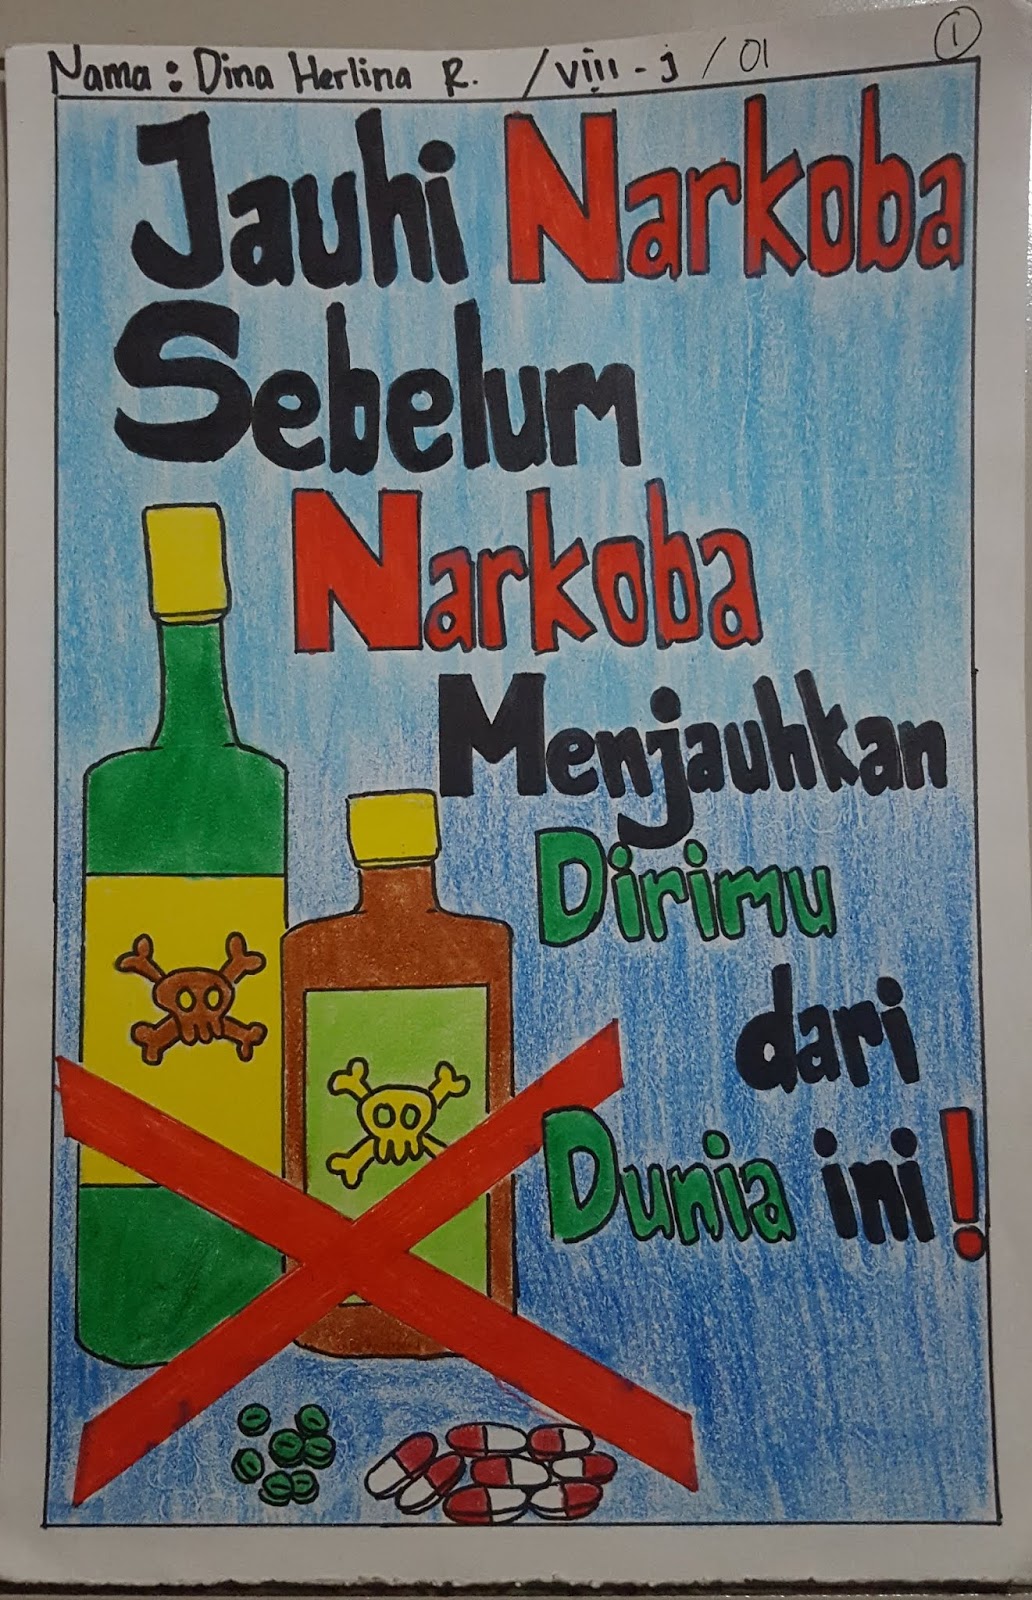 Nama : Dina Herlina R. / viii - j / 01
1
Jauhi Narkoba
Sebelum
Narkoba
Menjauhkan
Dirimu
dari
Dunia ini!